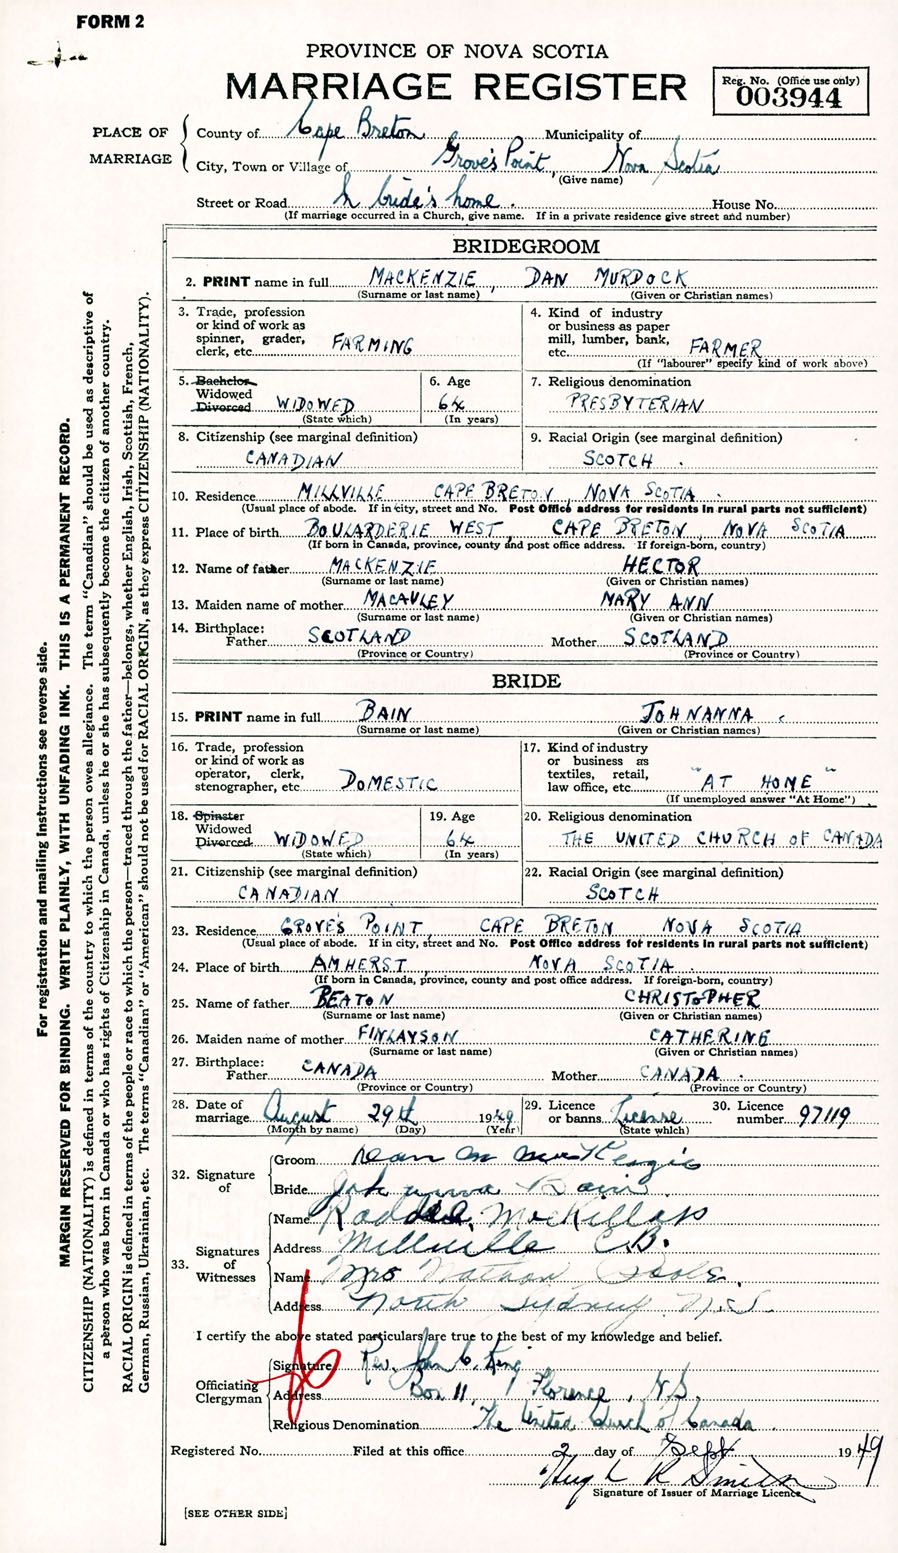 FORM 2
PROVINCE OF NOVA SCOTIA
MARRIAGE REGISTER
Reg. No. (Office use only)
003944
PLACE OF MARRIAGE
County of Cape Breton Municipality of
City, Town or Village of Grove's Point, Nova Scotia
(Give name)
Street or Road In bride's home. House No.
(If marriage occurred in a Church, give name. If in a private residence give street and number)
BRIDEGROOM
2. PRINT name in full MACKENZIE, DAN MURDOCK
(Surname or last name) (Given or Christian names)
3. Trade, profession
or kind of work as
spinner, grader,
clerk, etc. FARMING
4. Kind of industry
or business as paper
mill, lumber, bank,
etc. FARMER
(If "labourer" specify kind of work above)
5. Bachelor
Widowed
Divorced WIDOWED
(State which)
6. Age
64
(In years)
7. Religious denomination
PRESBYTERIAN
8. Citizenship (see marginal definition)
CANADIAN
9. Racial Origin (see marginal definition)
SCOTCH.
10. Residence MILLVILLE CAPE BRETON, NOVA SCOTIA.
(Usual place of abode. If in city, street and No. Post Office address for residents in rural parts not sufficient)
11. Place of birth BOULARDERIE WEST, CAPE BRETON, NOVA SCOTIA
(If born in Canada, province, county and post office address. If foreign-born, country)
12. Name of father MACKENZIE HECTOR
(Surname or last name) (Given or Christian names)
13. Maiden name of mother MACAULEY MARY ANN
(Surname or last name) (Given or Christian names)
14. Birthplace:
Father SCOTLAND Mother SCOTLAND
(Province or Country) (Province or Country)
BRIDE
15. PRINT name in full BAIN JOHNANNA
(Surname or last name) (Given or Christian names)
16. Trade, profession
or kind of work as
operator, clerk,
stenographer, etc DOMESTIC
17. Kind of industry
or business as
textiles, retail,
law office, etc. "AT HOME"
(If unemployed answer "At Home")
18. Spinster
Widowed
Divorced WIDOWED
(State which)
19. Age
64
(In years)
20. Religious denomination
THE UNITED CHURCH OF CANADA
21. Citizenship (see marginal definition)
CANADIAN
22. Racial Origin (see marginal definition)
SCOTCH
23. Residence GROVE'S POINT, CAPE BRETON NOVA SCOTIA
(Usual place of abode. If in city, street and No. Post Office address for residents in rural parts not sufficient)
24. Place of birth AMHERST, NOVA SCOTIA.
(If born in Canada, province, county and post office address. If foreign-born, country)
25. Name of father BEATON CHRISTOPHER
(Surname or last name) (Given or Christian names)
26. Maiden name of mother FINLAYSON CATHERINE
(Surname or last name) (Given or Christian names)
27. Birthplace:
Father CANADA Mother CANADA.
(Province or Country) (Province or Country)
28. Date of
marriage August 29th 1949
(Month by name) (Day) (Year)
29. Licence
or banns. License
(State which)
30. Licence
number. 97119
32. Signature
of
Groom Dan M MacKenzie
Bride Johanna Bain
33. Signatures
of
Witnesses
Name Roddie MacKillop
Address Millville C.B.
Name Mrs Nathan Poole.
Address North Sydney, N.S.
I certify the above stated particulars are true to the best of my knowledge and belief.
Officiating
Clergyman
Signature Rev. John C. King
Address Box 11, Florence, N.S.
Religious Denomination The United Church of Canada
Registered No. Filed at this office 2 day of Sept 1949
Hugh R Smith
Signature of Issuer of Marriage Licence
[SEE OTHER SIDE]
For registration and mailing instructions see reverse side.
MARGIN RESERVED FOR BINDING. WRITE PLAINLY, WITH UNFADING INK. THIS IS A PERMANENT RECORD.
CITIZENSHIP (NATIONALITY) is defined in terms of the country to which the person owes allegiance. The term "Canadian" should be used as descriptive of
a person who was born in Canada or who has rights of Citizenship in Canada, unless he or she has subsequently become the citizen of another country.
RACIAL ORIGIN is defined in terms of the people or race to which the person—traced through the father—belongs, whether English, Irish, Scottish, French,
German, Russian, Ukrainian, etc. The terms "Canadian" or "American" should not be used for RACIAL ORIGIN, as they express CITIZENSHIP (NATIONALITY).